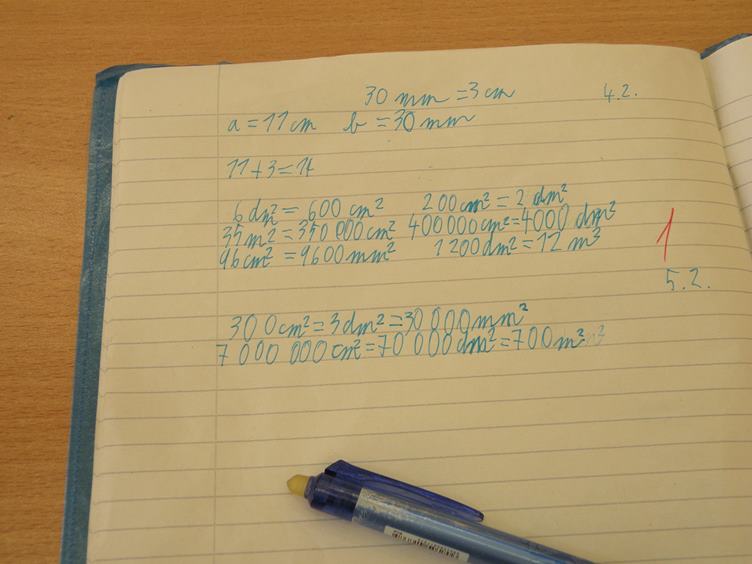 30 mm = 3 cm 4.2.
a = 11 cm b = 30 mm
11+3=14
6 dm² = 600 cm² 200 cm² = 2 dm²
35 m2 = 350 000 cm² 400000 cm² = 4000 dm³
96 cm² = 9600 mm² 1200 dm² = 12 m³
1
5.2.
300 cm² = 3 dm² = 30 000 mm²
7 000 000 cm² = 70 000 dm² = 700 m²